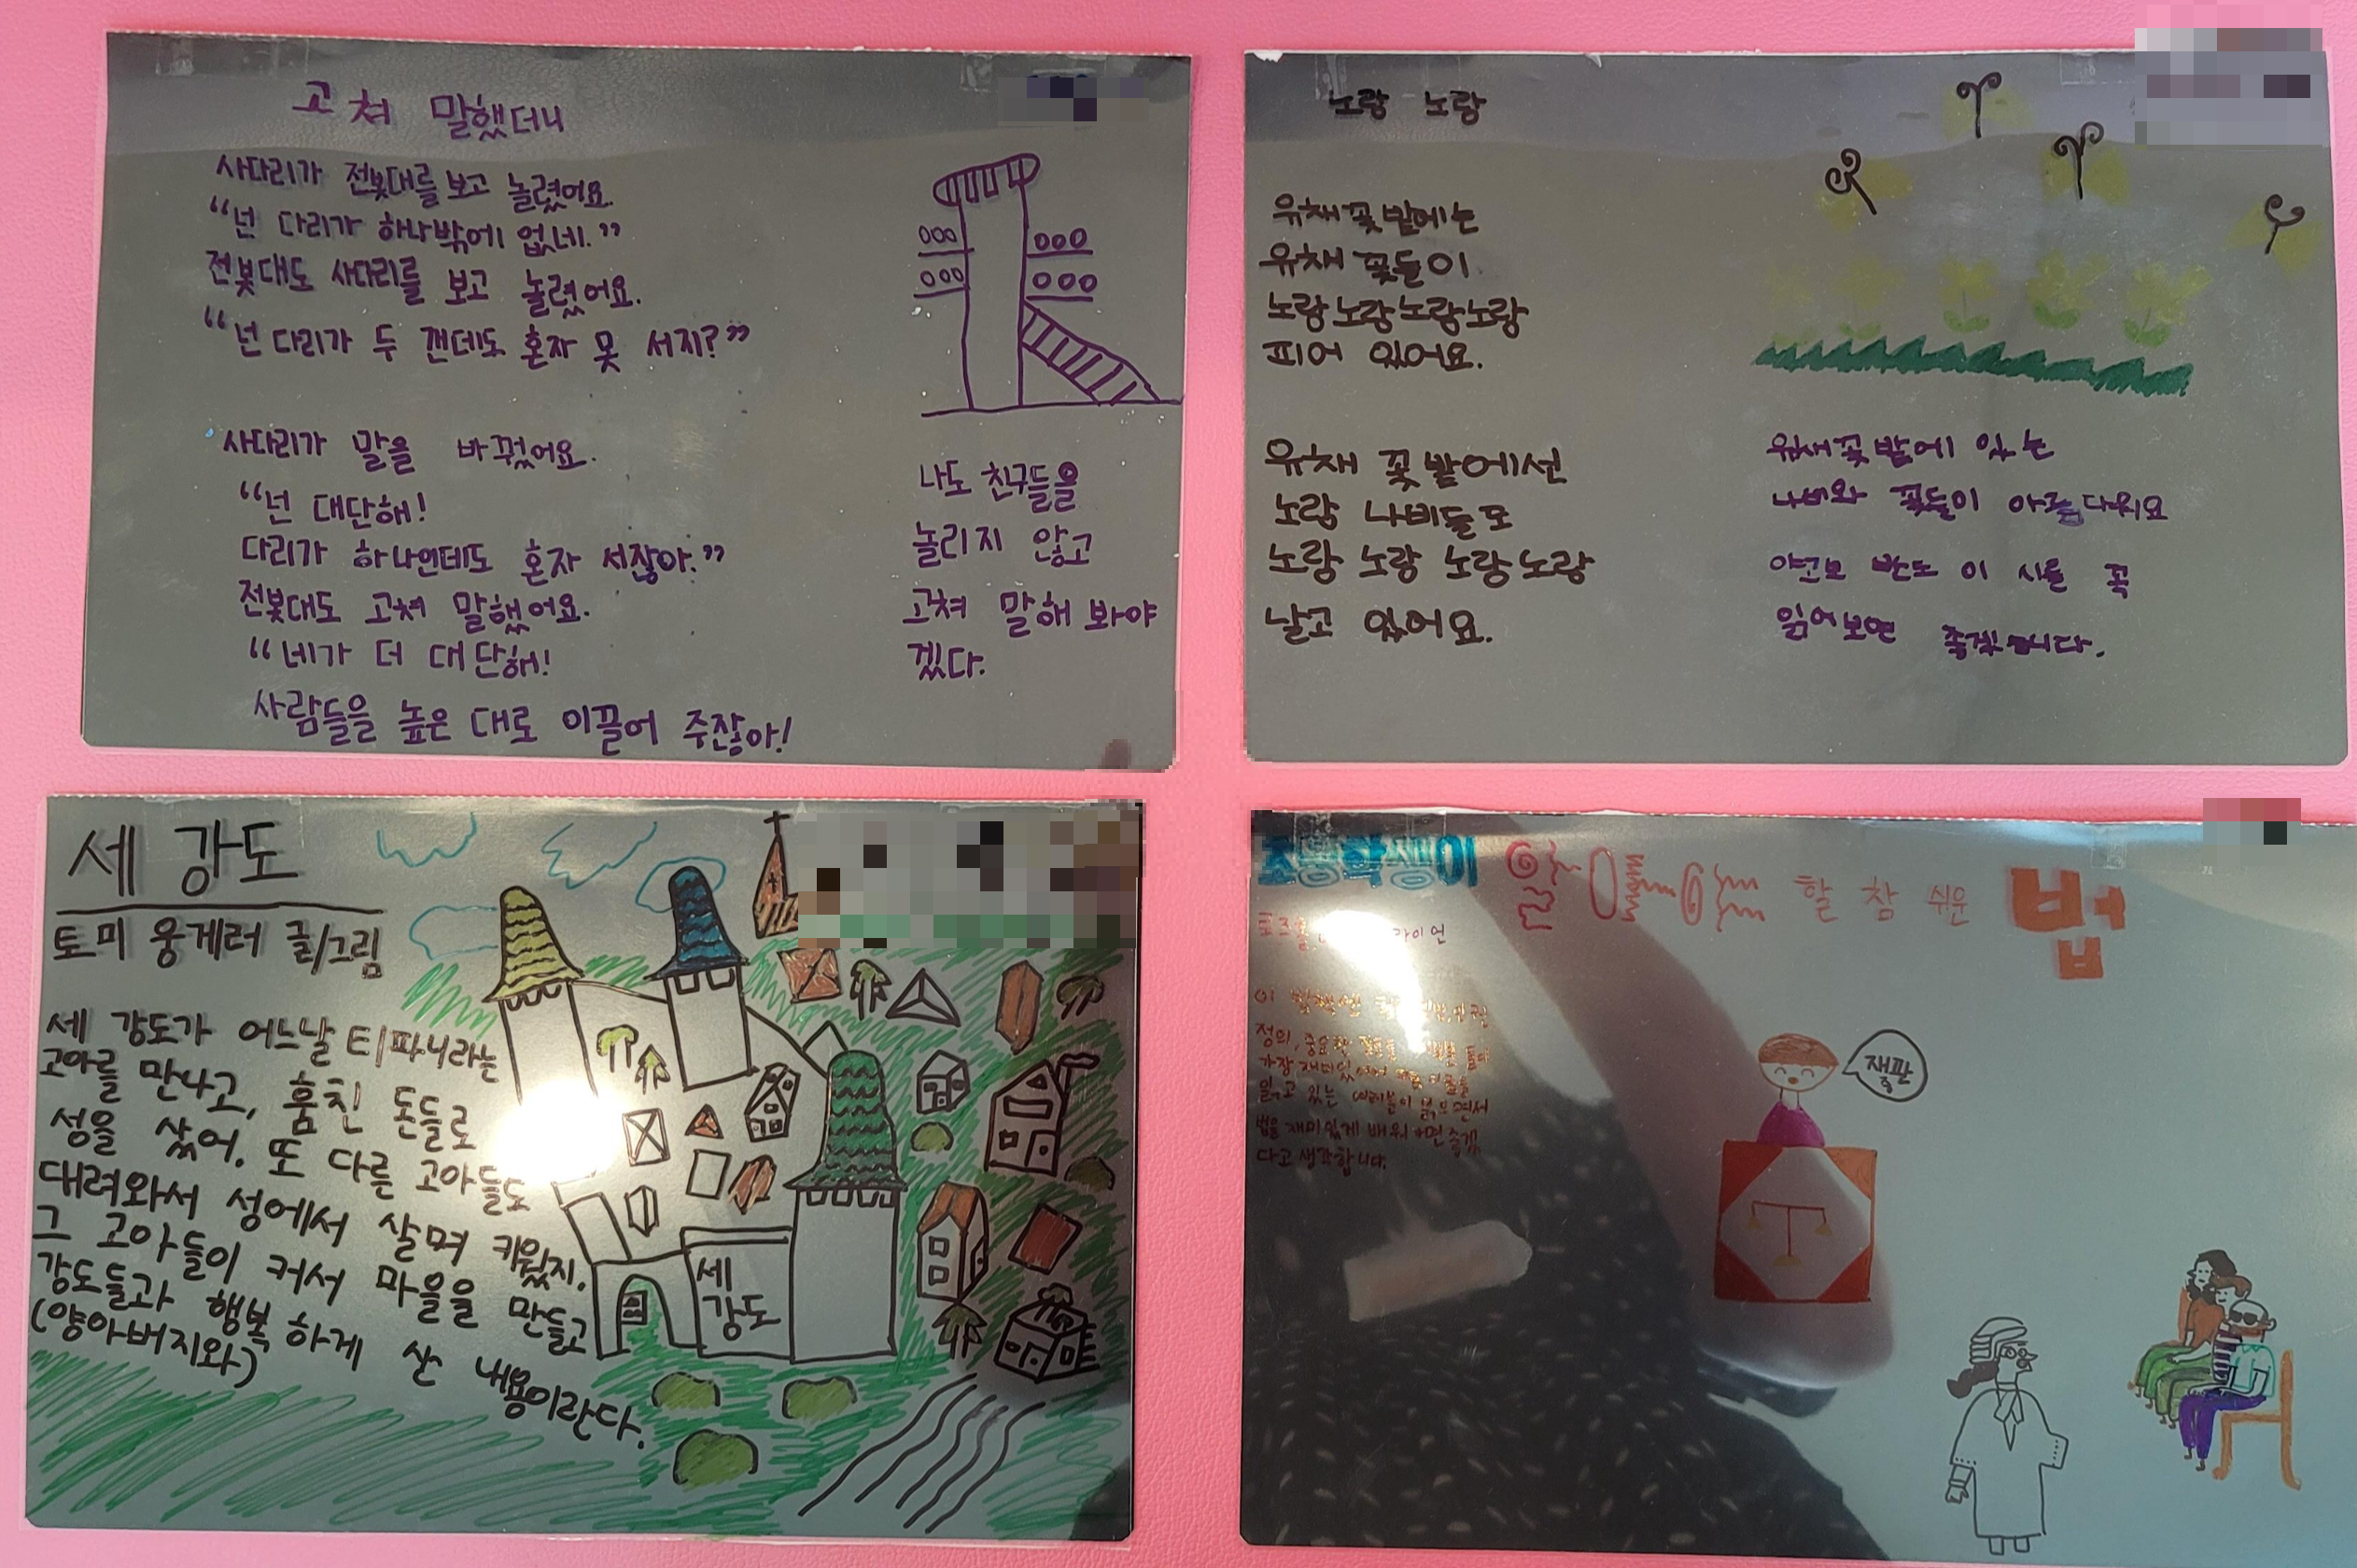 고쳐 말했더니
사다리가 전봇대를 보고 놀렸어요.
“넌 다리가 하나밖에 없네.”
전봇대도 사다리를 보고 놀렸어요.
“넌 다리가 두 갠데도 혼자 못 서지?”
사다리가 말을 바꿨어요.
“넌 대단해!
다리가 하나인데도 혼자 서잖아.”
전봇대도 고쳐 말했어요.
“네가 더 대단해!
사람들을 높은 대로 이끌어 주잖아!
나도 친구들을
놀리지 않고
고쳐 말해 봐야
겠다.
노랑 노랑
유채꽃밭에는
유채 꽃들이
노랑노랑노랑노랑
피어 있어요.
유채 꽃밭에선
노랑 나비들도
노랑 노랑 노랑노랑
날고 있어요.
꽃밭에 있는
나비와 꽃들이
야고보 반도 이 시를 꼭
읽어보면 좋겠습니다.
세 강도
토미 웅게러 글/그림
세 강도가 어느날 티파니라는
고아를 만나고, 훔친 돈들로
성을 샀어. 또 다른 고아들도
대려와서 성에서 살며 키웠지.
그 고아들이 커서 마을을 만들고
강도들과 행복하게 산 내용이란다.
(양아버지와)
세
강도
초등학생이 할 참 쉬운 법
라이언
이
정의, 중요한
가장 재미있
읽고 있는 여러분이 읽으면서
법을 재미있게 배워
다고 생각합니다.
재판
중